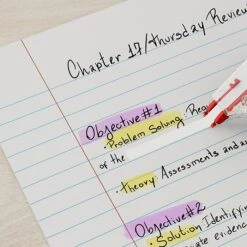 Chapter 17/Thursday Review
Objective #1
· Problem Solving:
of the
· Theory: Assessments and
Objective #2
· Solution Identifying
evidence